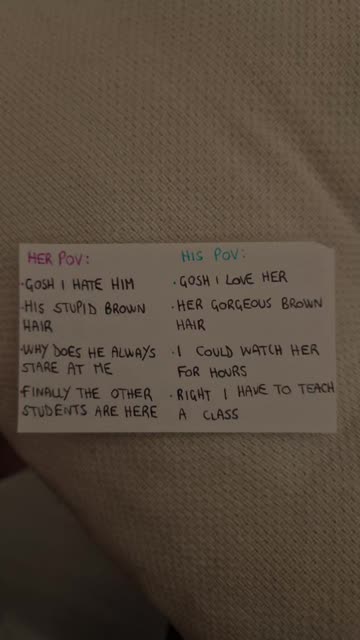 HER POV:
·GOSH I HATE HIM
·HIS STUPID BROWN
HAIR
·WHY DOES HE ALWAYS
STARE AT ME
·FINALLY THE OTHER
STUDENTS ARE HERE
HIS POV:
·GOSH I LOVE HER
·HER GORGEOUS BROWN
HAIR
·I COULD WATCH HER
FOR HOURS
·RIGHT I HAVE TO TEACH
A CLASS